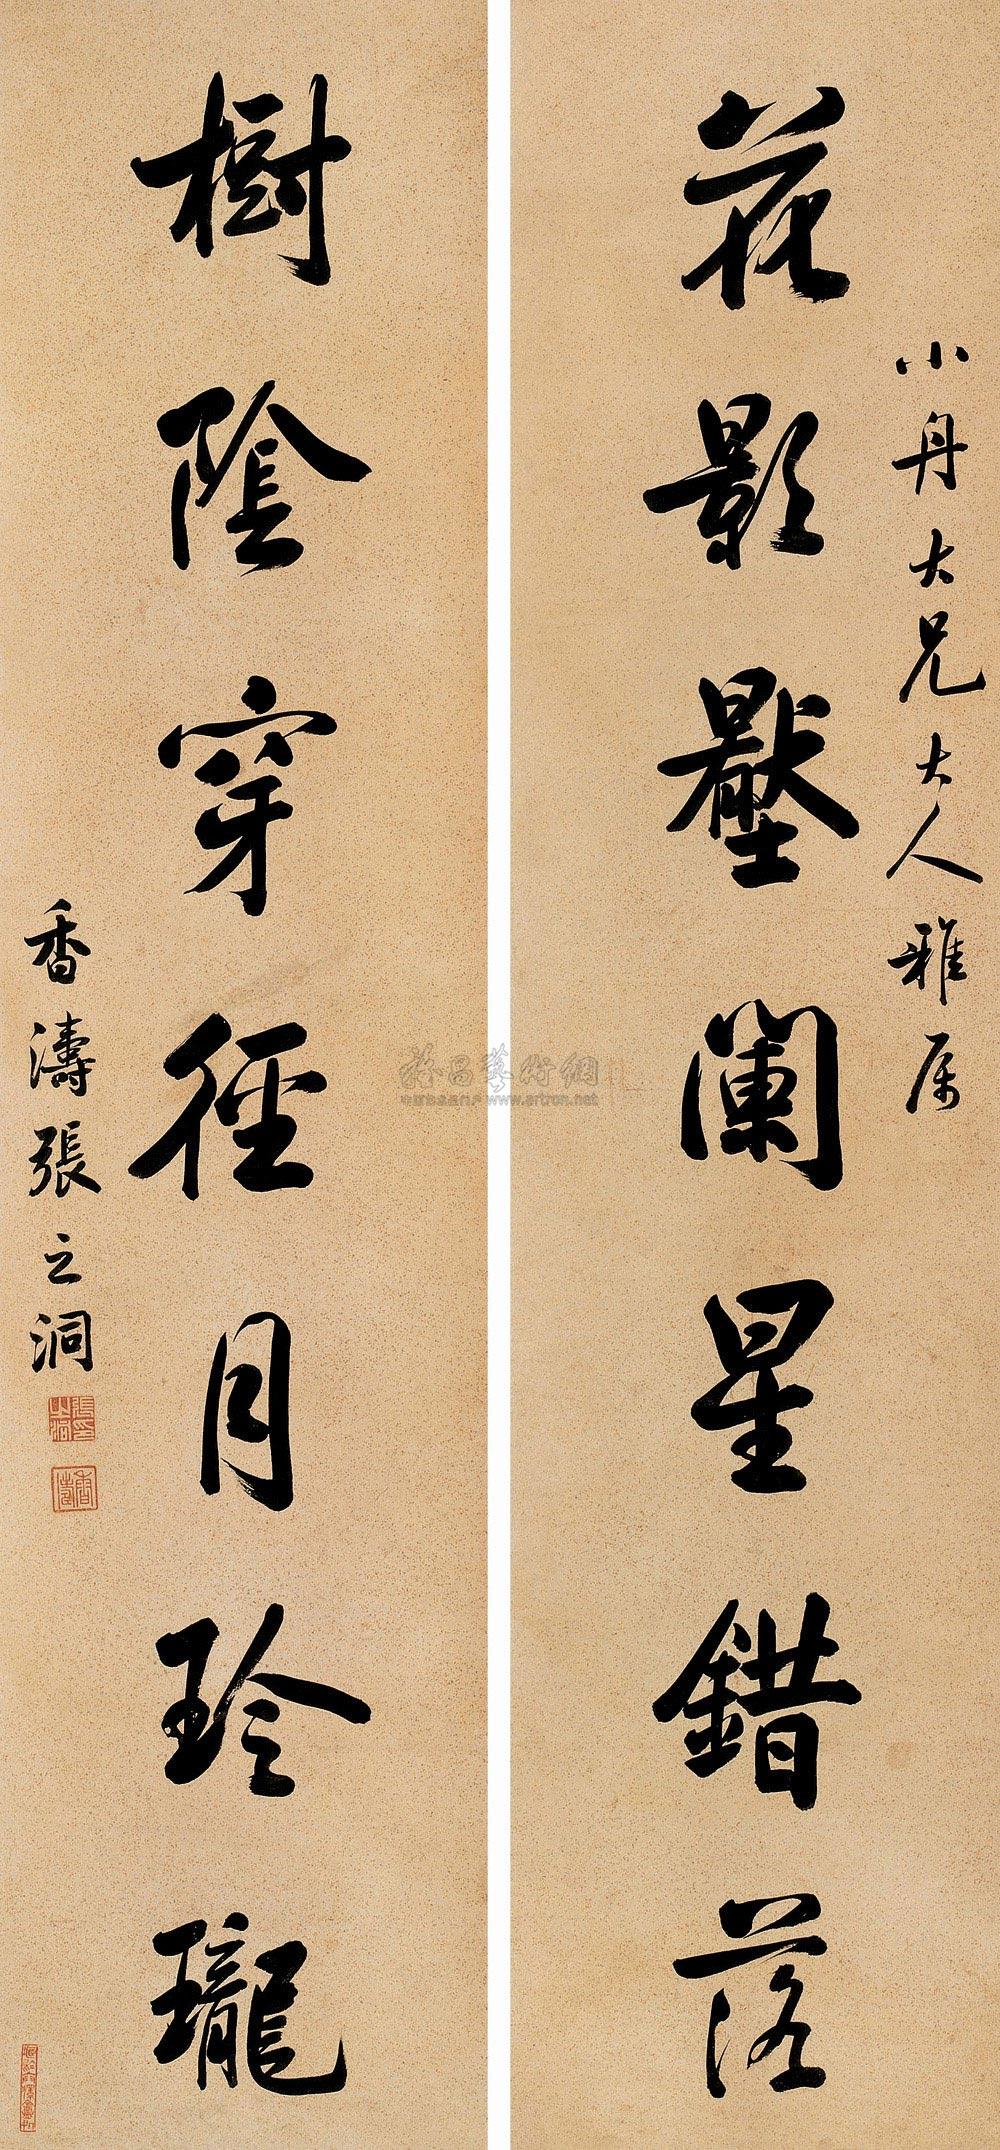 小舟大兄大人雅属
花影壓闌星錯落
樹陰穿徑月玲瓏
香濤張之洞
張之洞印
香濤
雅昌藝術網
www.artron.net